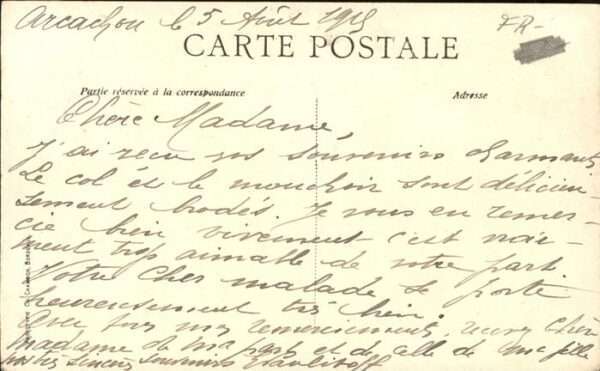 Arcachon le 5 Août 1915
FR-
CARTE POSTALE
Partie réservée à la correspondance
Adresse
Chère Madame,
J'ai reçu vos souvenirs charmants
Le col et le mouchoir sont délicieu-
sement brodés. Je vous en remer-
cie bien vivement c'est vrai-
ment trop aimable de votre part.
Votre cher malade se porte
heureusement très bien.
Avec tous mes remerciements, recevez chère
madame de ma part et de celle de ma fille
nos très sincères souvenirs